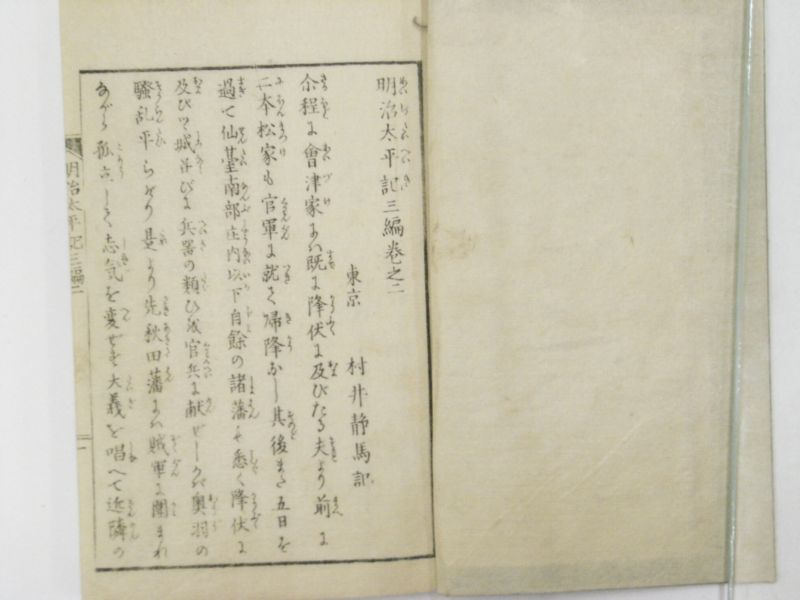 明治太平記三編巻之二
東京 村井静馬記
尒程に會津家にハ既に降伏に及びたる夫より前に
二本松家も官軍に就て帰降なし其後また五日を
過て仙臺南部庄内以下自餘の諸藩も悉く降伏に
及びて城并びに兵器の類ひを官兵に献ぜしかバ奥羽の
騒乱平らぎけり是より先秋田藩にハ賊軍に圍まれ
ながら孤立して志気を変ぜず大義を唱へて近隣の
明治太平記三編二